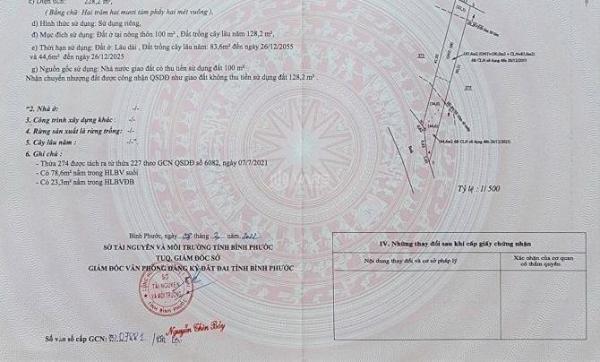 c) Diện tích: 228,2 m²,
(Bằng chữ: Hai trăm hai mươi tám phẩy hai mét vuông)
d) Hình thức sử dụng: Sử dụng riêng,
đ) Mục đích sử dụng: Đất ở tại nông thôn 100 m², Đất trồng cây lâu năm: 128,2 m²,
e) Thời hạn sử dụng: Đất ở: Lâu dài, Đất trồng cây lâu năm: 83,6m² đến ngày 26/12/2055
và 44,6m² đến ngày 26/12/2025
g) Nguồn gốc sử dụng: Nhà nước giao đất có thu tiền sử dụng đất 100 m²
Nhận chuyển nhượng đất được công nhận QSDĐ như giao đất không thu tiền sử dụng đất 128,2 m².
"2. Nhà ở: -/-
3. Công trình xây dựng khác : -/-
4. Rừng sản xuất là rừng trồng: -/-
5. Cây lâu năm : -/-".
6. Ghi chú :
- Thửa 274 được tách ra từ thửa 227 theo GCN QSDĐ số 6082, ngày 07/7/2021
- Có 78,6m² nằm trong HLBV suối
- Có 23,3m² nằm trong HLBVĐB
Tỷ lệ: 1/ 500
Bình Phước, ngày tháng năm
SỞ TÀI NGUYÊN VÀ MÔI TRƯỜNG TỈNH BÌNH PHƯỚC
TUQ. GIÁM ĐỐC SỞ
GIÁM ĐỐC VĂN PHÒNG ĐĂNG KÝ ĐẤT ĐAI TỈNH BÌNH PHƯỚC
SỞ
TÀI NGUYÊN
VÀ MÔI TRƯỜNG
Số vào sổ cấp GCN:
IV. Những thay đổi sau khi cấp giấy chứng nhận
Nội dung thay đổi và cơ sở pháp lý
Xác nhận của cơ quan
có thẩm quyền